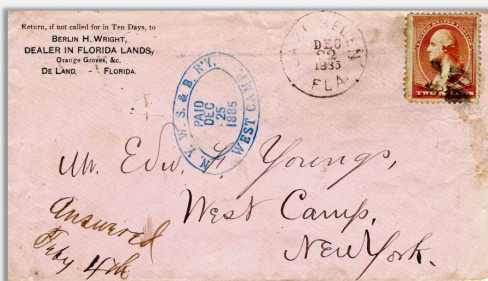 Return, if not called for in Ten Days, to
BERLIN H. WRIGHT,
DEALER IN FLORIDA LANDS,
Orange Groves, &c.
DE LAND, - FLORIDA.
HELEN
DEC
22
1885
FLA.
UNITED STATES POSTAGE
TWO CENTS
N.Y.W.S. & B. R'Y.
PAID
DEC
25
1885
WEST CAMP.
Mr. Edw. Youngs,
West Camp,
New York.
Answered
Feby 4th